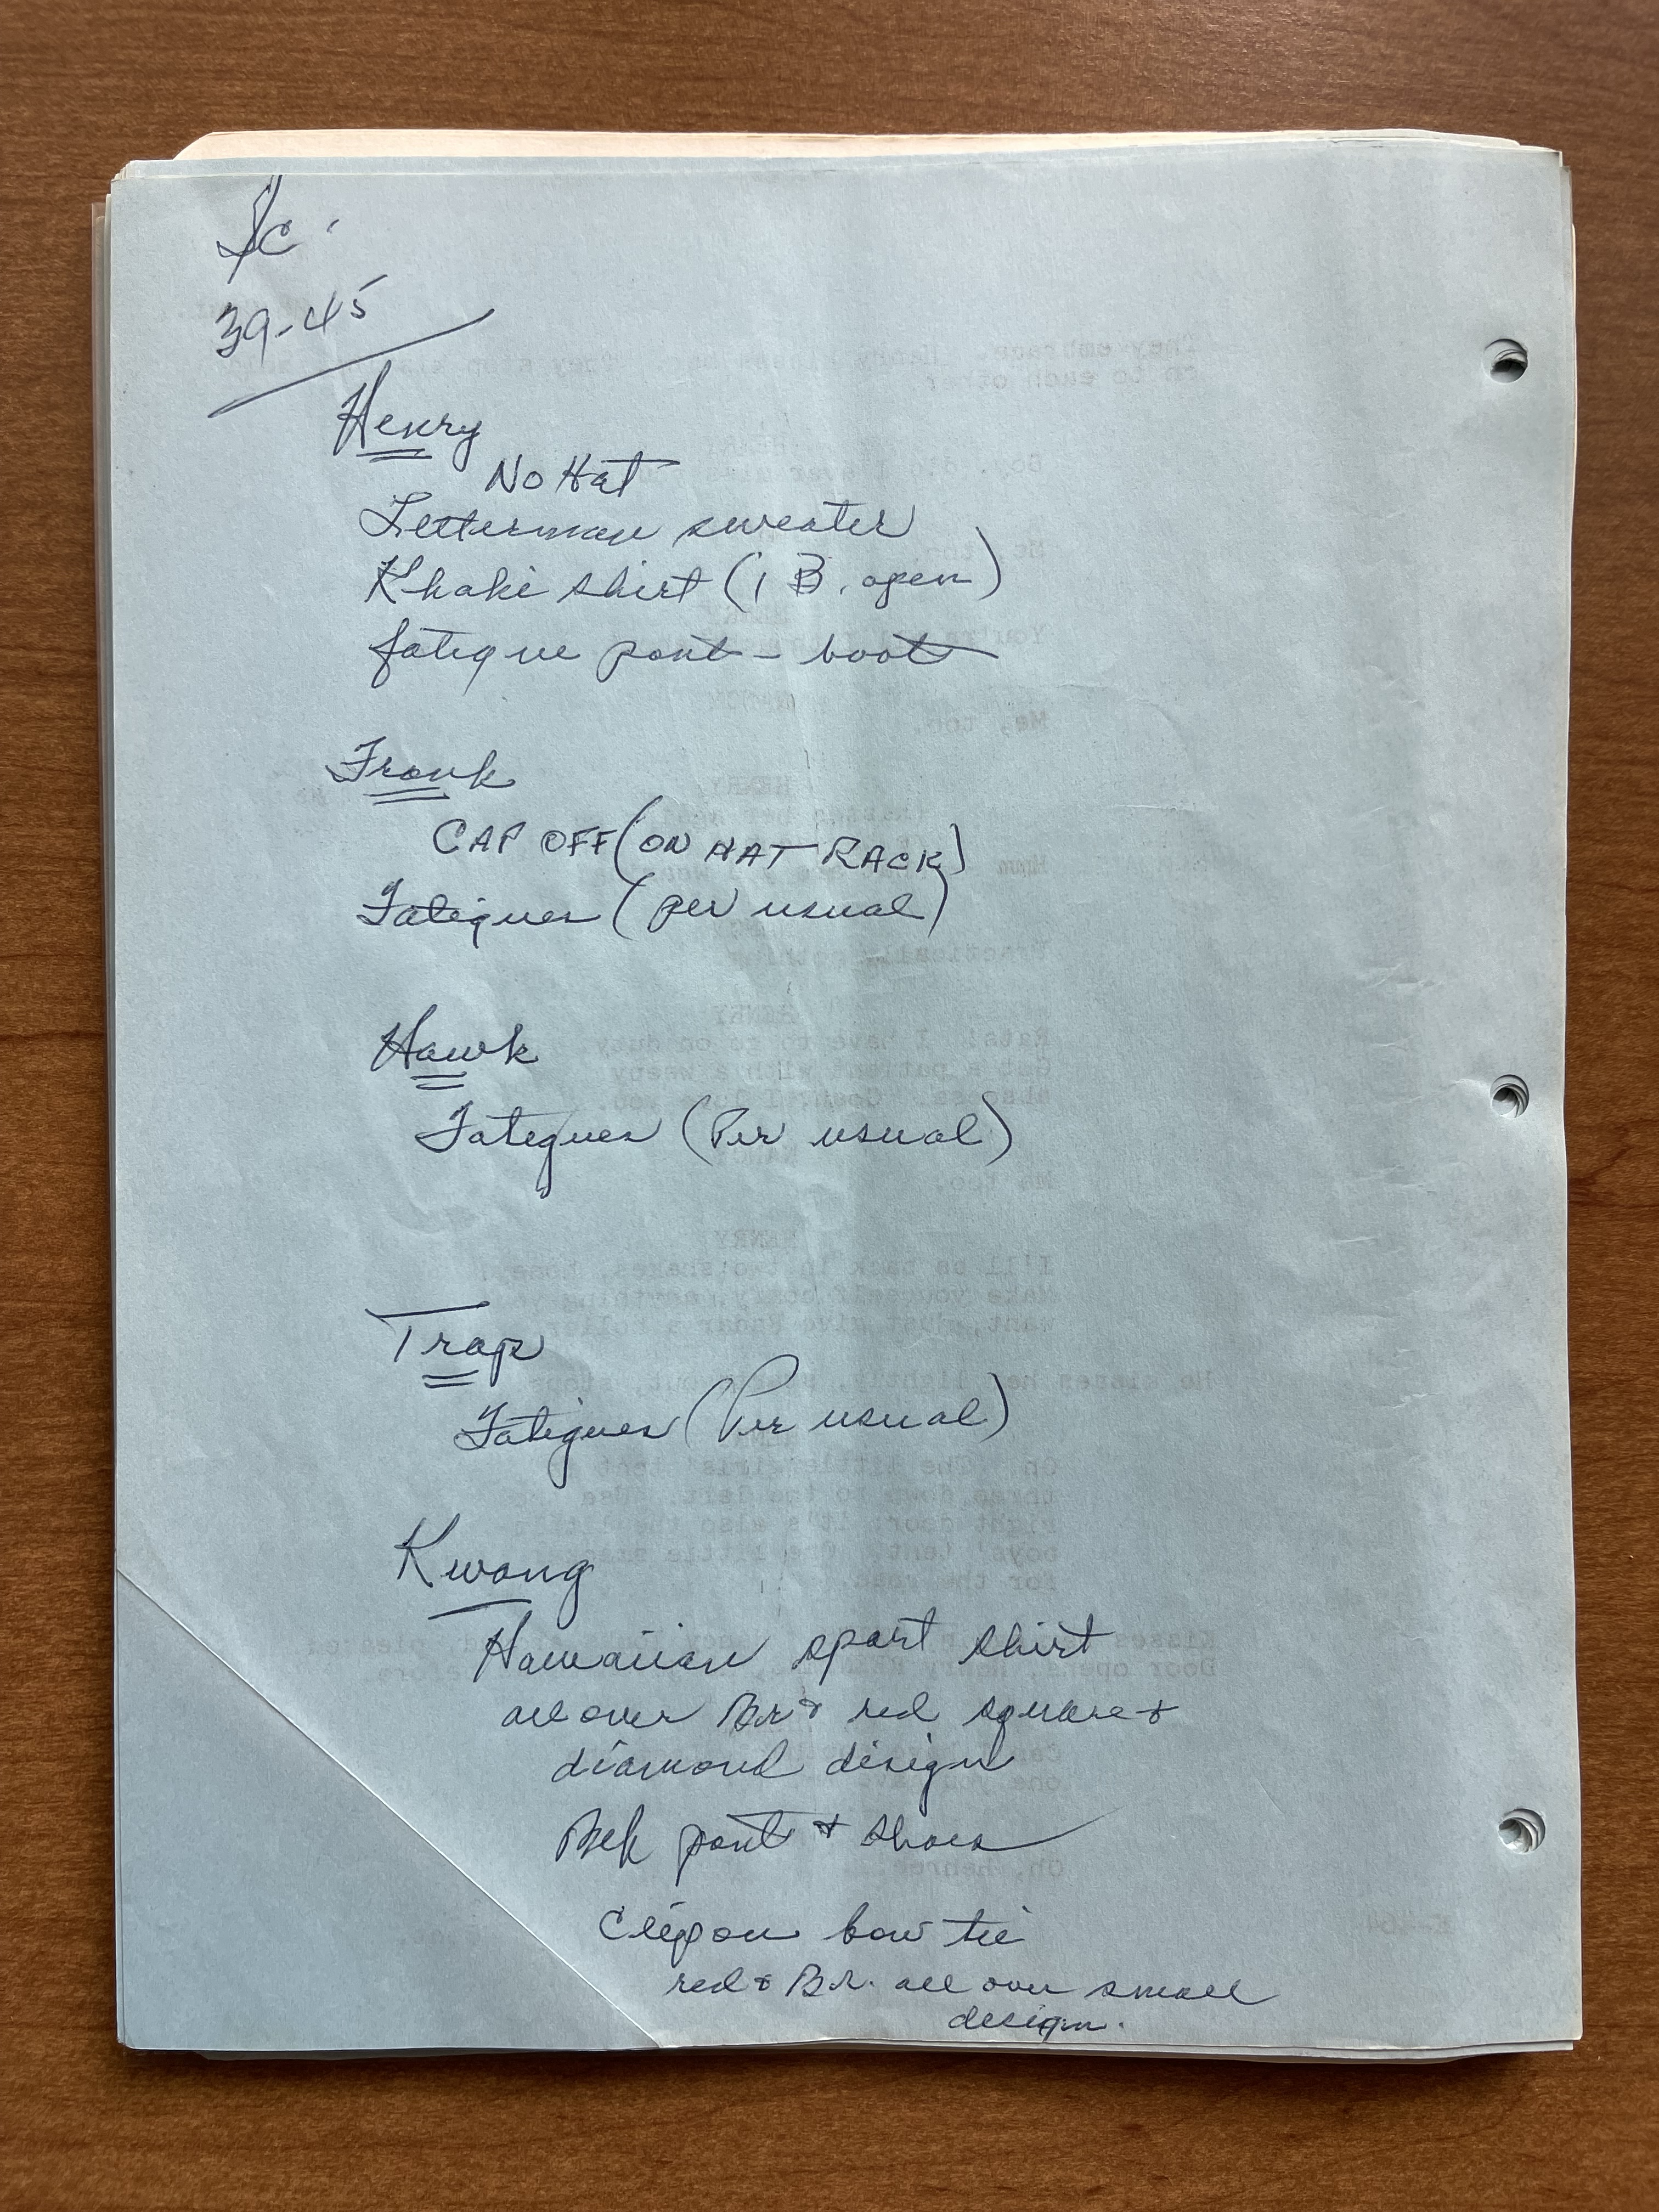 Sc.
39-45
Henry
No Hat
Letterman sweater
Khaki shirt (1 B. open)
fatigue pant - boots
Frank
CAP OFF (ON HAT RACK)
Fatigues (per usual)
Hawk
Fatigues (Per usual)
Trap
Fatigues (Per usual)
Kwong
Hawaiian sport shirt
all over Br & red square &
diamond design
Blk pant & shoes
Clip on bow tie
red & Br. all over small
design.